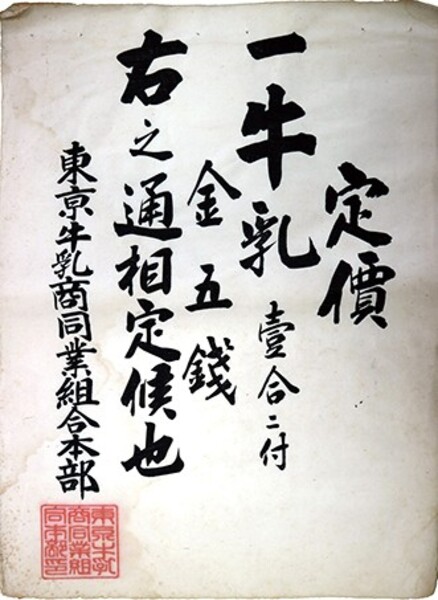 定價
一牛乳壹合ニ付
金五錢
右之通相定候也
東京牛乳商同業組合本部
東京牛乳
商同業組
合本部印